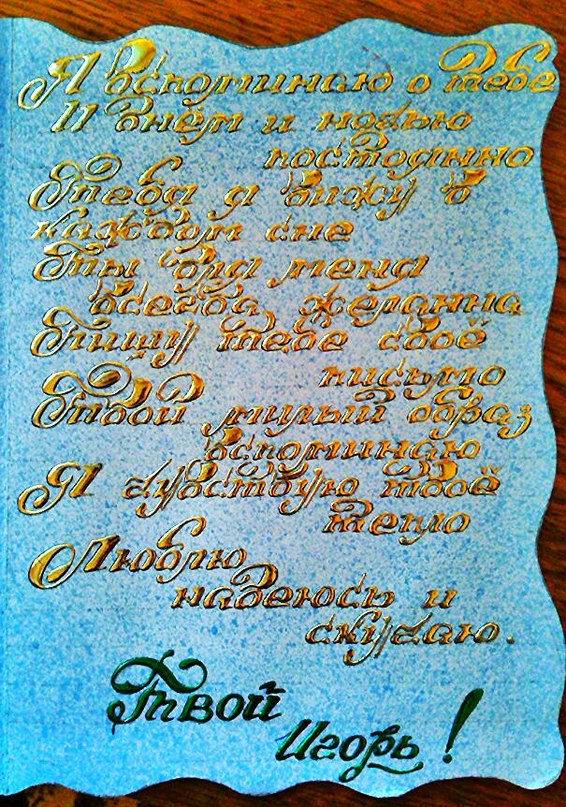 Я вспоминаю о тебе
И днём и ночью
постоянно
Тебя я вижу в
каждом сне
Ты для меня
всегда желанна
Пишу тебе своё
письмо
Твой милый образ
вспоминаю
Я чувствую твоё
тепло
Люблю
надеюсь и
скучаю.
Твой
Игорь!